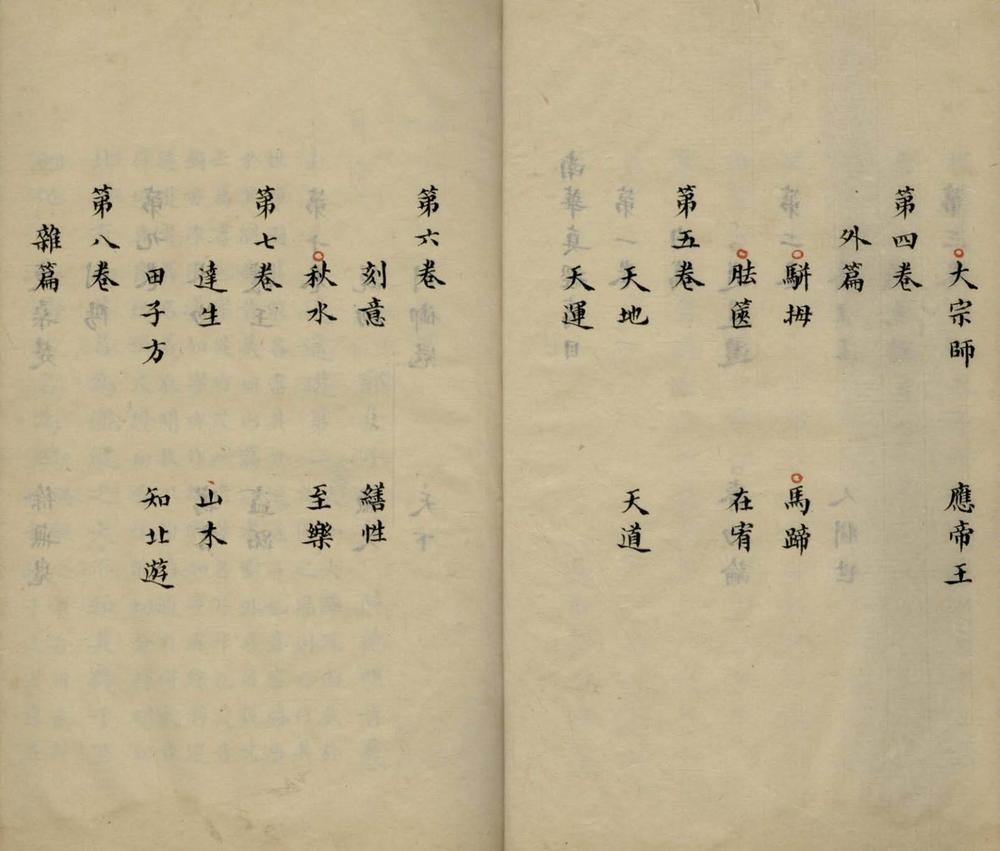 大宗師 應帝王
第四卷
外篇
駢拇 馬蹄
胠篋 在宥
第五卷
天地 天道
天運
第六卷
刻意 繕性
秋水 至樂
第七卷
達生 山木
田子方 知北遊
第八卷
雜篇